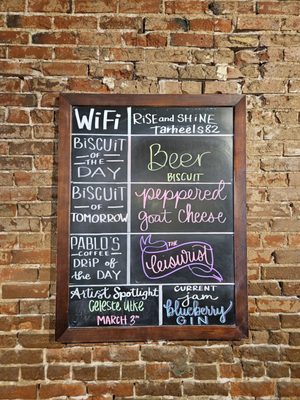 WiFi
RiSE and SHiNE
Tarheels82
BiSCUiT
OF THE
DAY
Beer
BISCUIT
BiSCUiT
OF
TOMORROW
peppered
goat cheese
PABLO'S
COFFEE
DRiP of
the DAY
THE
leisurist
Artist Spotlight
Celeste Uike
MARCH 3rd
CURRENT
jam
blueberry
GIN